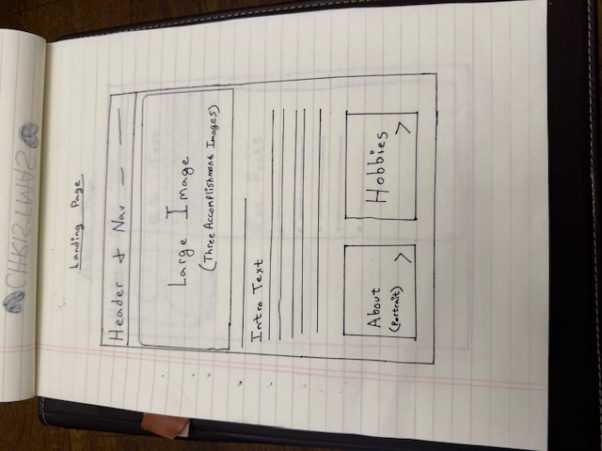 CHRISTMAS
Landing Page
Header & Nav
Large Image
(Three Accomplishment Images)
Intro Text
About
(Portrait)
>
Hobbies
>